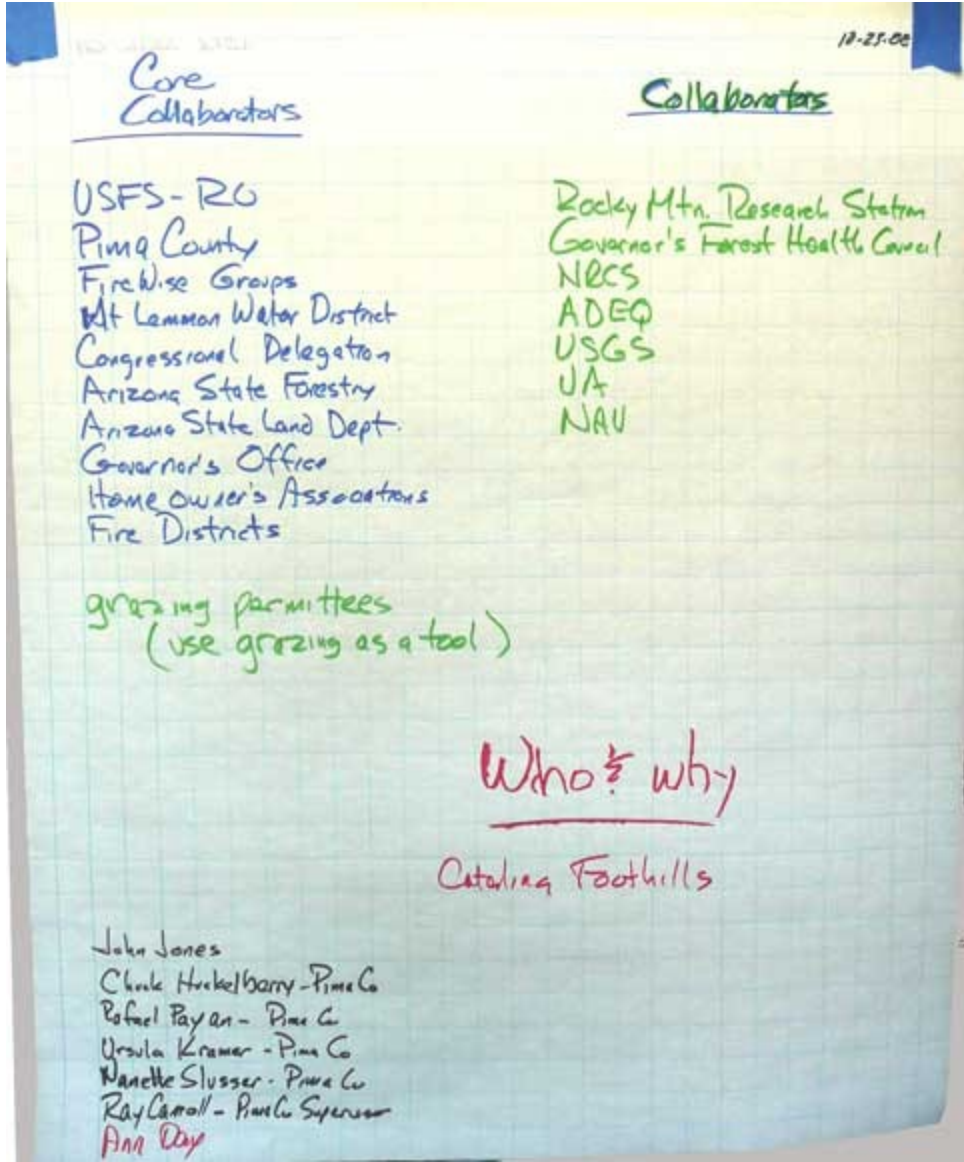 Core
Collaborators
USFS-RO
Pima County
FireWise Groups
Mt Lemmon Water District
Congressional Delegation
Arizona State Forestry
Arizona State Land Dept.
Governor's Office
Home owner's Associations
Fire Districts
grazing permittees
(use grazing as a tool)
Collaborators
Rocky Mtn. Research Station
Governor's Forest Health Council
NRCS
ADEQ
USGS
UA
NAU
Who & why
Catalina Foothills
John Jones
Chuck Huckelberry - Pima Co
Rafael Payan - Pima Co
Ursula Kramer - Pima Co
Nanette Slusser - Pima Co
Ray Carroll - Pima Co Supervisor
Ann Day